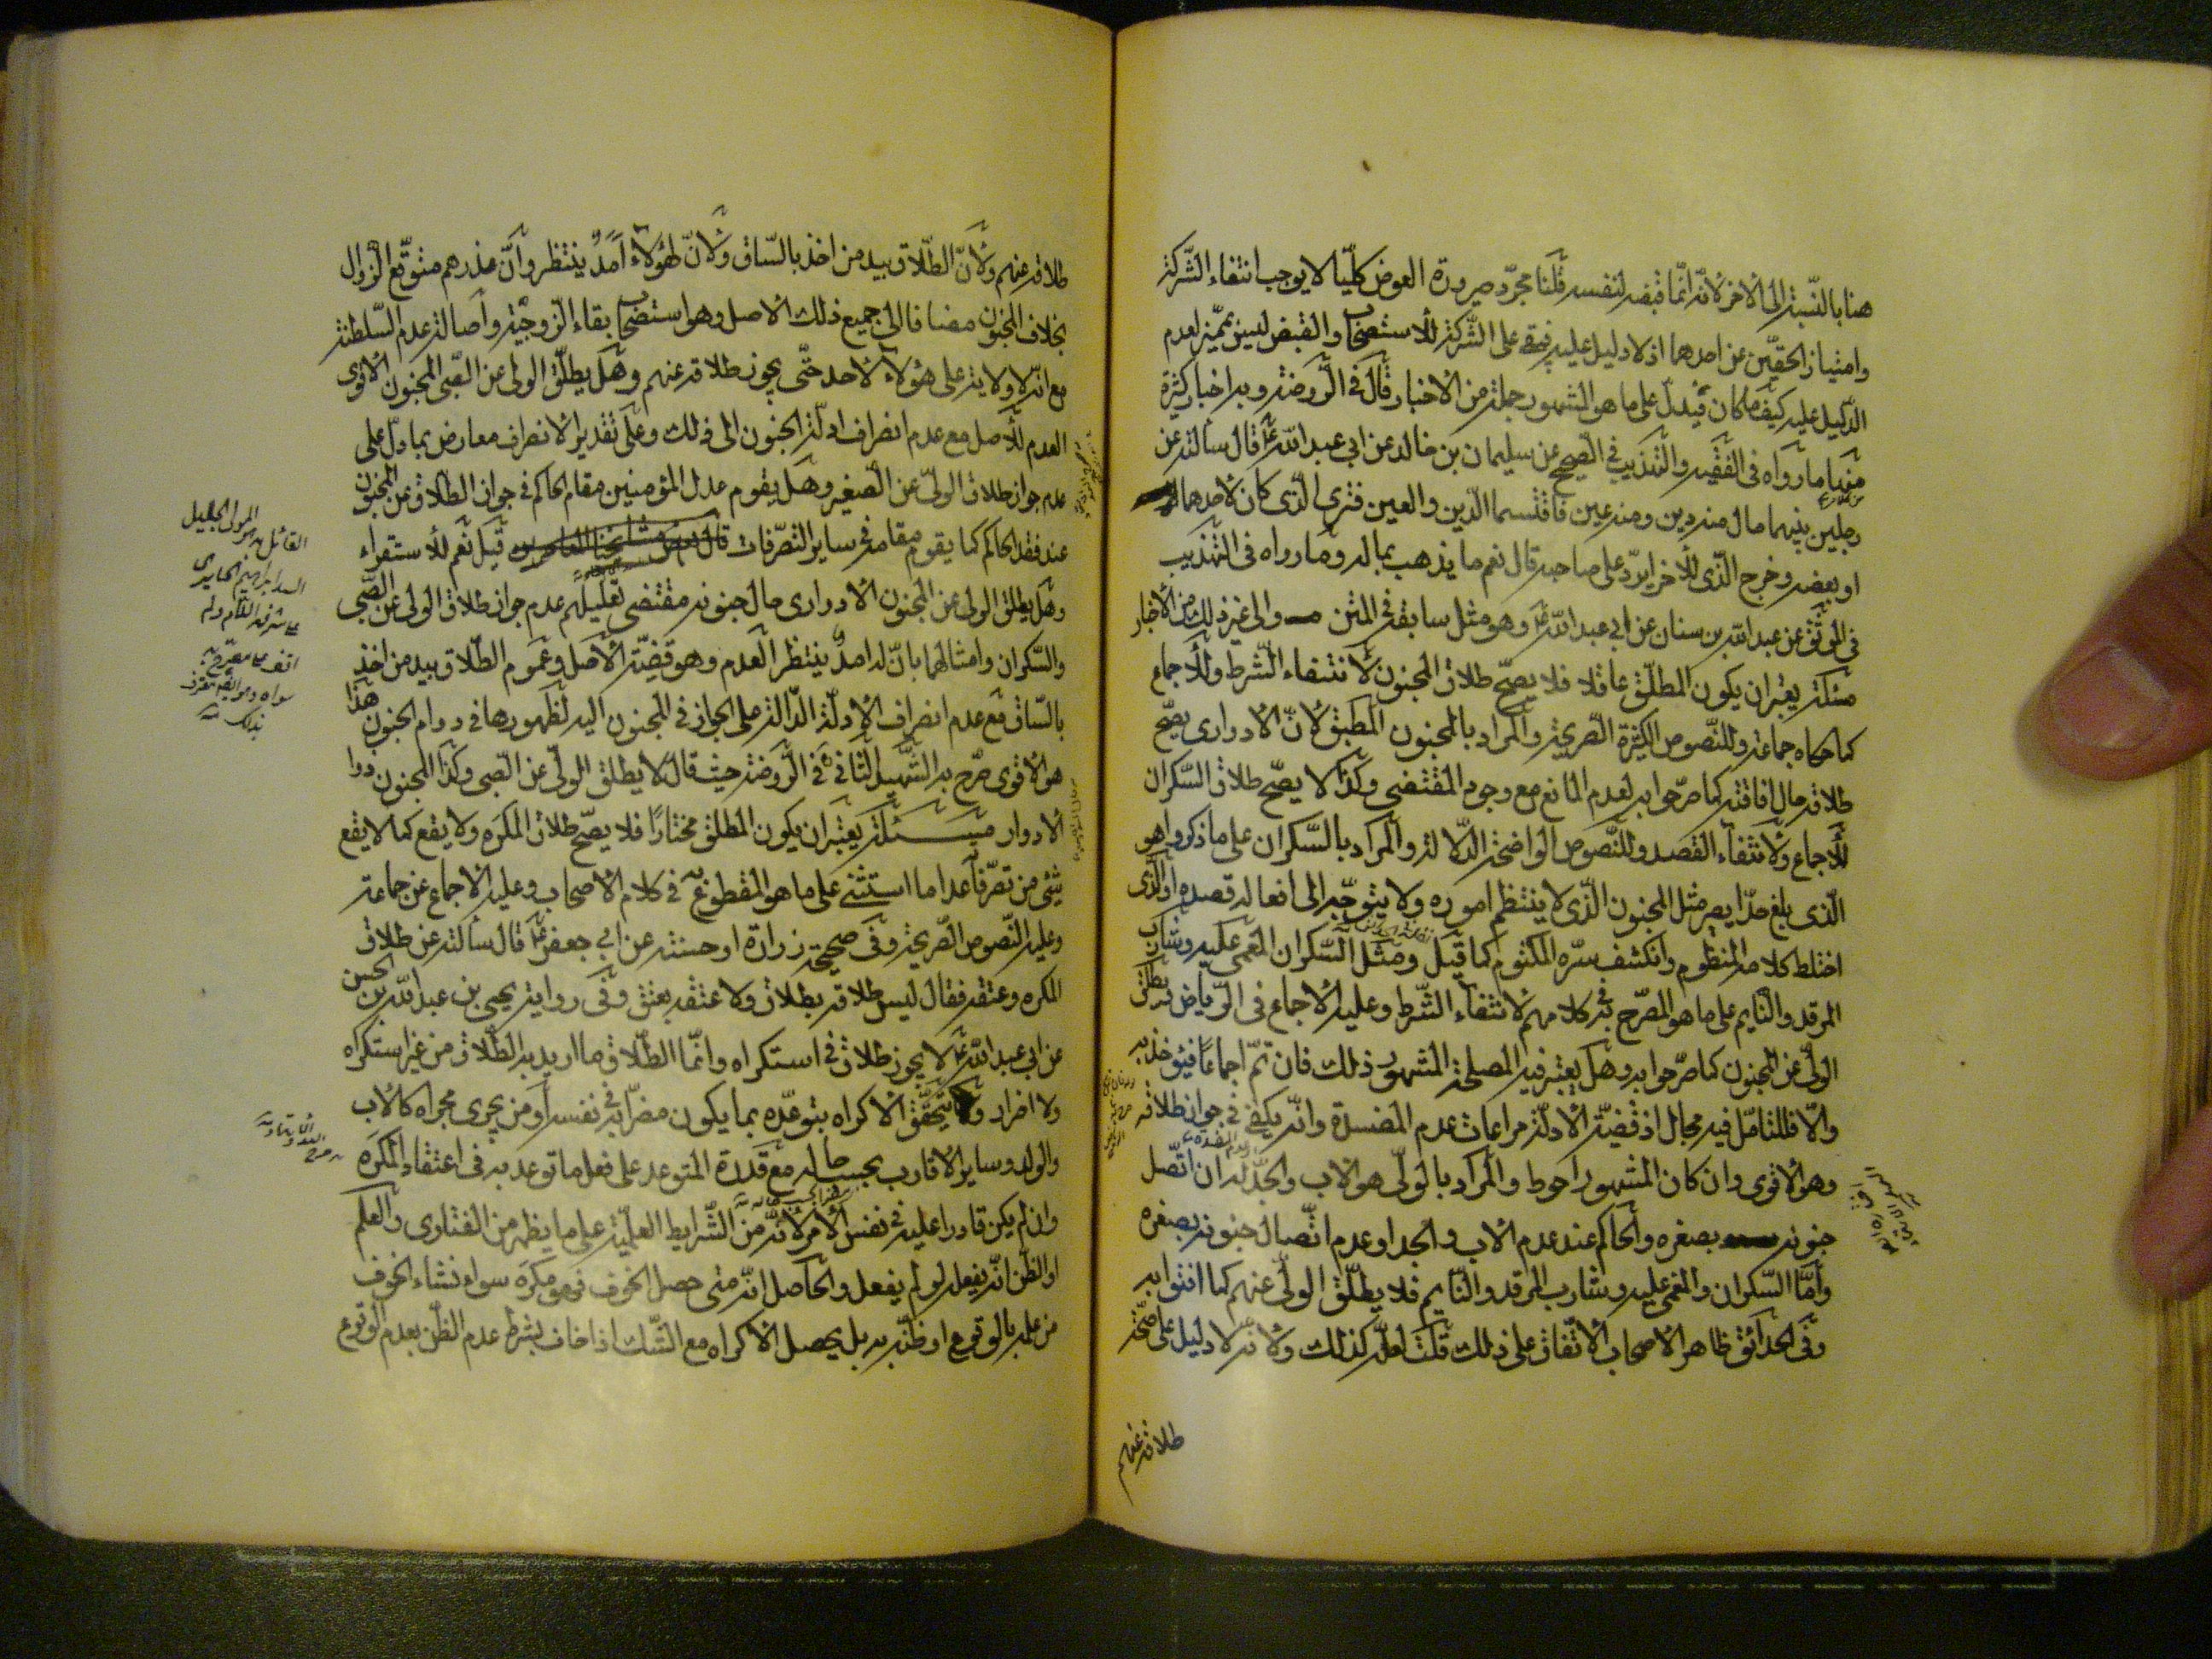 هنا بالنسبة الى الاخر لانّه انّما قبضه لنفسه قلنا مجرّد صيرورة العوض كليّا لا يوجب انتفاء الشركة
وامتياز الحقّين عن احدهما اذ لا دليل عليه فيبقى على الشركة للاستصحاب والقبض ليس بمميّز لعدم
الدليل عليه كيف ما كان فيدلّ على ما هو المشهور جملة من الاخبار قال في الروضة وبه اخبار كثيرة
منها ما رواه في الفقيه والتهذيب في الصحيح عن سليمان بن خالد عن ابي عبد الله ع قال سألته عن
رجلين بينهما مال منه دين ومنه عين فاقتسما الدين والعين فتوى الّذى كان لاحدهما
او بعضه وخرج الّذى للاخر ايردّ على صاحبه قال نعم ما يذهب بماله وما رواه في التهذيب
في الموثق عن عبد الله بن سنان عن ابي عبد الله ع وهو مثل سابقه في المتن والى غير ذلك من الاخبار
مسئلة يعتبر ان يكون المطلّق عاقلا فلا يصحّ طلاق المجنون لانتفاء الشرط وللاجماع
كما حكاه جماعة وللنصوص الكثيرة الصريحة والمراد بالمجنون المطبق لانّ الادوارى يصحّ
طلاقه حال افاقته كما صرّحوا به لعدم المانع مع وجود المقتضى وكذا لا يصحّ طلاق السّكران
للاجماع ولانتفاء القصد وللنصوص الواضحة الدّلالة والمراد بالسّكران على ما ذكروا هو
الّذى بلغ حدّا يصير مثل المجنون الّذى لا ينتظم اموره ولا يتوجّه الى افعاله قصده او الّذى
اختلط كلامه المنظوم وانكشف سرّه المكتوم كما قيل ومثل السّكران المغمى عليه وشارب
المرقد والنّايم على ما هو المصرّح به في كلامهم لانتفاء الشّرط وعليه الاجماع في الرّياض ثمّ يطلّق
الولىّ عن المجنون كما صرّحوا به وهل يعتبر فيه المصلحة المشهور ذلك فان تمّ اجماعا فيؤخذ به
والّا فللتامّل فيه مجال اذ قضيّة الادلّة مراعاة عدم المفسدة وانّه يكفى في جواز طلاقه
وهو الاقوى وان كان المشهور احوط والمراد بالولىّ هو الاب والجدّ له ان اتّصل
جنونه بصغره والحاكم عند عدم الاب والجد او عدم اتّصال جنونه بصغره
وامّا السّكران والمغمى عليه وشارب المرقد والنّايم فلا يطلّق الولىّ عنهم كما افتوا به
وفى الحدائق ظاهر الاصحاب الاتّفاق على ذلك قلت لعلّه كذلك ولانّه لا دليل على صحّة
طلاقه عنهم
طلاقه عنهم ولانّ الطّلاق بيد من اخذ بالسّاق ولانّ لهؤلاء امدٌ ينتظر وانّ عذرهم متوقّع الزوال
بخلاف المجنون مضافا الى جميع ذلك الاصل وهو استصحاب بقاء الزوجيّة واصالة عدم السّلطنة
مع انّه لا ولاية على هؤلاء لاحد حتّى يجوز طلاقه عنهم وهل يطلّق الولى عن الصّبى المجنون الاقوى
العدم للاصل مع عدم انصراف ادلّة الجنون الى ذلك وعلى تقدير الانصراف معارض بما دلّ على
عدم جواز طلاق الولىّ عن الصّغير وهل يقوم عدل المؤمنين مقام الحاكم في جواز الطلاق عن المجنون
عند فقد الحاكم كما يقوم مقامه في ساير التصرّفات قيل نعم للاستقراء
وهل يطلق الولى عن المجنون الادوارى حال جنونه مقتضى تعليلهم عدم جواز طلاق الولى عن الصّبى
والسّكران وامثالهما بانّ له امدٌ ينتظر العدم وهو قضيّة الاصل وعموم الطّلاق بيد من اخذ
بالسّاق مع عدم انصراف الادلّة الدّالة على الجواز في المجنون اليه لظهورها في دوام الجنون هذا
هو الاقوى صرّح به الشّهيد الثانى في الرّوضة حيث قال لا يطلق الولىّ عن الصّبى وكذا المجنون ذوا
الادوار مسئلة يعتبر ان يكون المطلق مختارًا فلا يصحّ طلاق المكره ولا يقع كما لا يقع
شئ من تصرّفاته عدا ما استثنى على ما هو المقطوع به في كلام الاصحاب وعليه الاجماع عن جماعة
وعليه النّصوص الصّريحة وفى صحيحة زرارة او حسنته عن ابي جعفر ع قال سألته عن طلاق
المكره وعتقه فقال ليس طلاقه بطلاق ولا عتقه بعتق وفى رواية يحيى بن عبد الله بن الحسن
عن ابى عبد الله ع لا يجوز طلاق في استكراه وانّما الطّلاق ما اريد به الطّلاق من غير استكراه
ولا اضرار و يتحقّق الاكراه بتوعّده بما يكون مضرّا به في نفسه او من يجرى مجراه كالاب
والولد وساير الاقارب بحسب حاله مع قدرة المتوعد على فعل ما توعد به في اعتقاد المكره
وان لم يكن قادرا عليه في نفس الامر لانّه من الشّرايط العلميّة على ما يظهر من الفتاوى والعلم
او الظّن انّه يفعله لو لم يفعل والحاصل انّه متى حصل الخوف فهو مكره سواء نشاء الخوف
من علمه بالوقوع او ظنّه به بل يحصل الاكراه مع الشّك اذا خاف بشرط عدم الظّن بعدم الوقوع